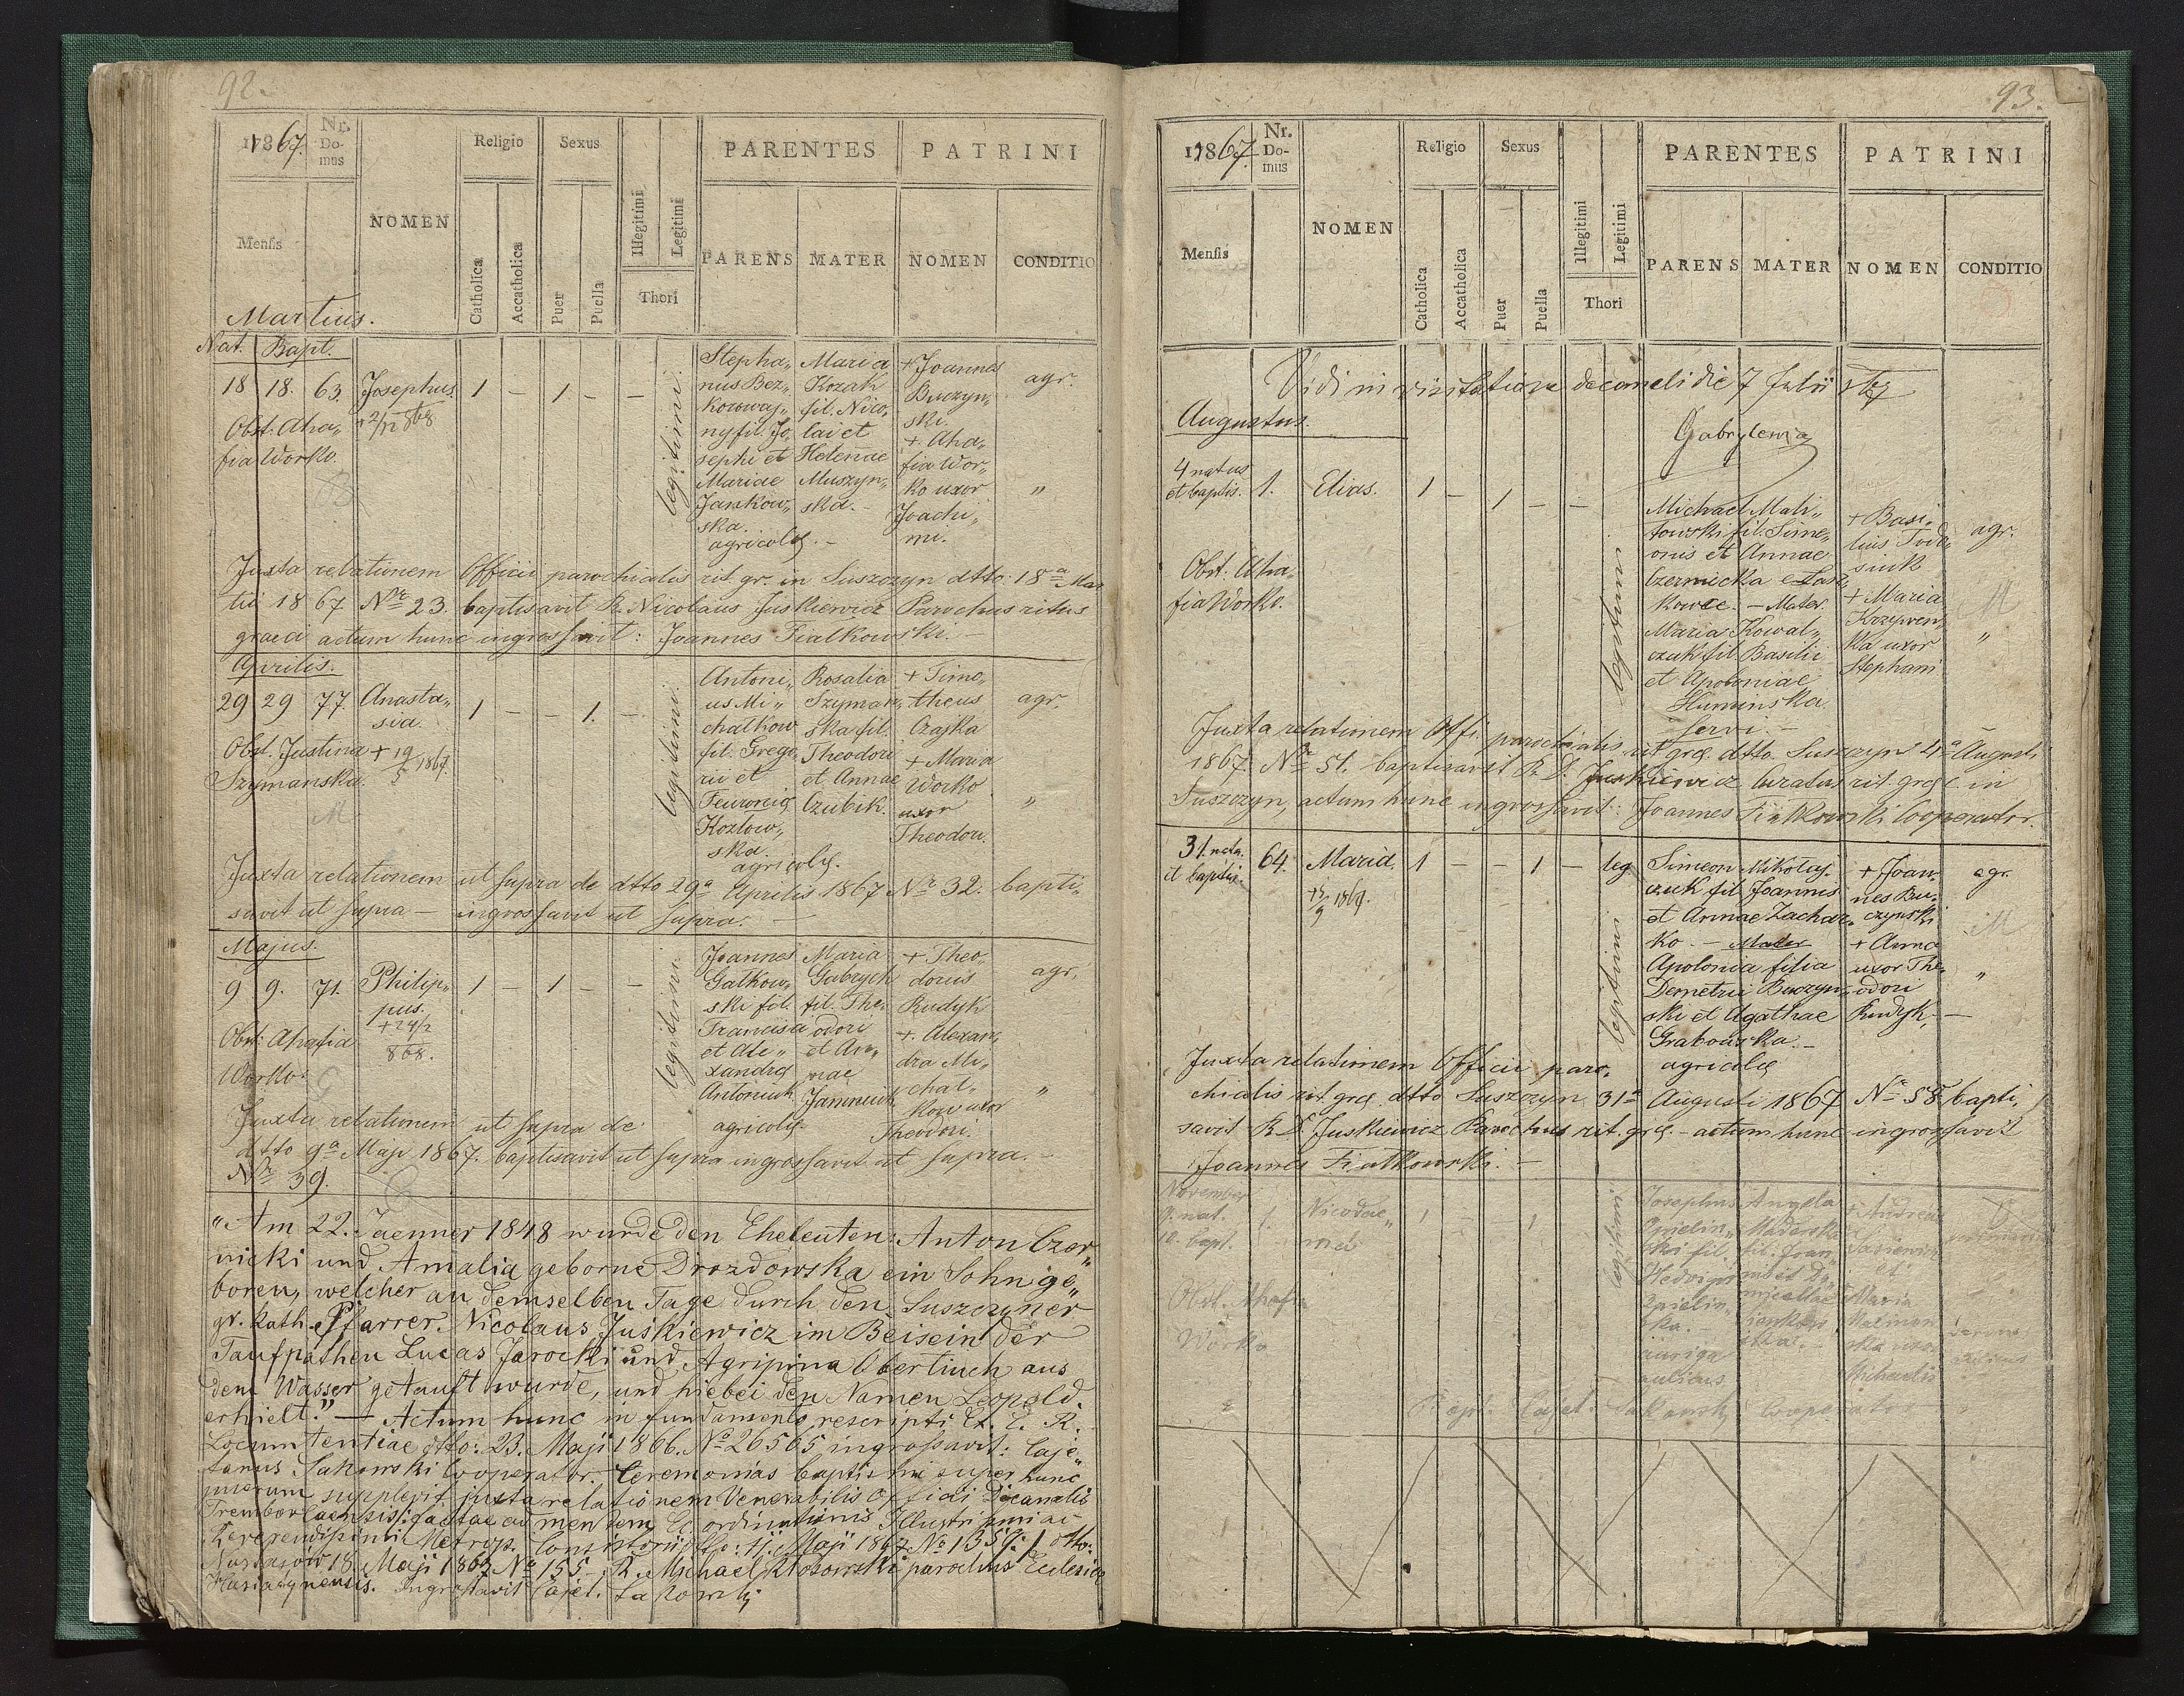 92.
1867.
Nr. Do-mus
NOMEN
Religio
Sexus
PARENTES
PATRINI
Mensis
Catholica
Accatholica
Puer
Puella
Illegitimi
Legitimi
Thori
PARENS
MATER
NOMEN
CONDITIO
Martius.
Nat. Bapt.
18 18. 63. Josephus. 1 – 1 – –
+ 2/12 868
Obst: Aha„
fia Worko.
legitimi.
Stepha„
nus Bez„
korowaj„
ny fil. Jo„
sephi et
Mariae
Jankow„
ska.
agricolę. –
Maria
Kozak
fil. Nico„
lai et
Helenae
Muszyn„
ska. –
+ Joannes
Buczyn„
ski.
+ Aha„
fia Wor„
ko uxor
Joachi„
mi.
agr.
„
Juxta relationem Officii parochialis rit. gr. in Suszczyn dtto: 18a Mar
tii 1867 Nr 23. baptisavit R. Nicolaus Juskiewicz Parochus ritus
graeci actum hunc ingrossavit: Joannes Fialkowski. –
Aprilis.
29 29 77. Anasta„
sia. 1 – – 1. –
+ 19/5 1867.
Obst. Justina
Szymanska.
M
legitimi.
Antoni„
us Mi„
chalkow
fil. Grego„
rii et
Feuronię
Kozlow„
ska.
agricolę.
Rosalia
Szyman„
ska fil.
Theodori
et Annae
Czubik.
+ Timo„
theus
Czajka
+ Maria
Worko
uxor
Theodori.
agr.
„
Juxta relationem ut supra de dtto 29a Aprilis 1867 Nr 32. bapti„
savit ut supra – ingrossavit ut supra. –
Majus.
9 9. 71. Philip„
pus. 1 – 1 – –
+ 24/2
868.
Obst: Ahafia
Worko.
legitimi.
Joannes
Galkow„
ski fil.
Francisci
et Ale„
xandrę
Antoniuk
agricolę
Maria
Gabrych
fil. The„
odori
et An„
nae
Jamniuk
+ Theo„
dorus
Rudyk
+ Alexan„
dra Mi„
chal„
kow uxor
Theodori.
agr.
„
Juxta relationem ut supra de
dtto 9a Maji 1867. baptisavit ut supra ingrossavit ut supra. –
Nr 39.
"Am 22. Jaenner 1848 wurde den Eheleuten: Anton Czer„
nicki und Amalia geborne Drozdowska ein Sohn ge„
boren, welcher an demselben Tage durch den Suszczyner
gr. kath. Pfarrer Nicolaus Juskiewicz im Beisein der
Taufpathen Lucas Jarocki und Agripina Obertiuch aus
dem Wasser getauft wurde, und hiebei den Namen Leopold.
erhielt." – Actum hunc in fundamento rescripti Ex. C. R.
Locumtentiae dtto: 23. Maji 1866. No 26565 ingrossavit: Caje„
tanus Sakowski Cooperator. – Ceremonias baptismi super hunc
puerum supplevit juxta relationem Venerabilis Officii Decanalis
Tremboviaensis
Reverendissimi Metrop. Consistorii
18. Maji 1867 No 155 – R. Michael parochus Ecclesiae
Ingrossavit Cajet. Sakowski
93.
1867.
Nr. Do-mus
NOMEN
Religio
Sexus
PARENTES
PATRINI
Mensis
Catholica
Accatholica
Puer
Puella
Illegitimi
Legitimi
Thori
PARENS
MATER
NOMEN
CONDITIO
Vidi in visitatione decanali die 7 Julii 867
Augustus.
4 natus
et baptis. 1. Elias. 1 – 1 – –
Obst: Aha„
fia Worko.
legitimi
Michael Mali„
towski fil. Sime„
onis et Annae
Czernicka e Las„
kowce. – Mater.
Maria Kowal„
czuk fil. Basilii
et Apoloniae
Huminska.
servi. –
+ Basi„
lius Fedo„
siuk
+ Maria
Krzywen„
ka uxor
Stephani
agr.
M
„
Juxta relationem Offi. parochialis rit gręc. dtto Suszczyn 4a Augusti
1867. Nr 51. baptisavit R. D. Juskiewicz Curatus rit. gręc. in
Suszczyn, actum hunc ingrossavit: Joannes Fialkowski Cooperator.
31. nata
et baptis. 64. Maria. 1 – – 1 – leg
1867.
legitimi
Simeon Mikolaj„
czuk fil Joannis
et Annae Zachar„
ko. – Mater
Apolonia filia
Demetrii Buczyn„
ski et Agathae
Grabowska. –
agricolę
+ Joan„
nes Bu„
czynski
+ Anna
uxor The„
odori
Rudyk. –
agr.
M
„
Juxta relationem Officii paro„
chialis rit. gręc. dtto Suszczyn 31a Augusti 1867 Nr 58 bapti„
savit R. D. Juskiewicz Parochus rit. gręc. – actum hunc ingrossavit
Joannes Fialkowski. –
November
9. nat.
10. bapt. 1. Nicode„
1 – – 1
Obst. Ahafia
Worko
legitimi
Josephus
ski fil.
ska.
auriga
aulicus
Angela
fil. Joan„
+ Andreas
et
Maria
ska uxor
Michaelis
Bapt. Cajet. Sakowski Cooperator